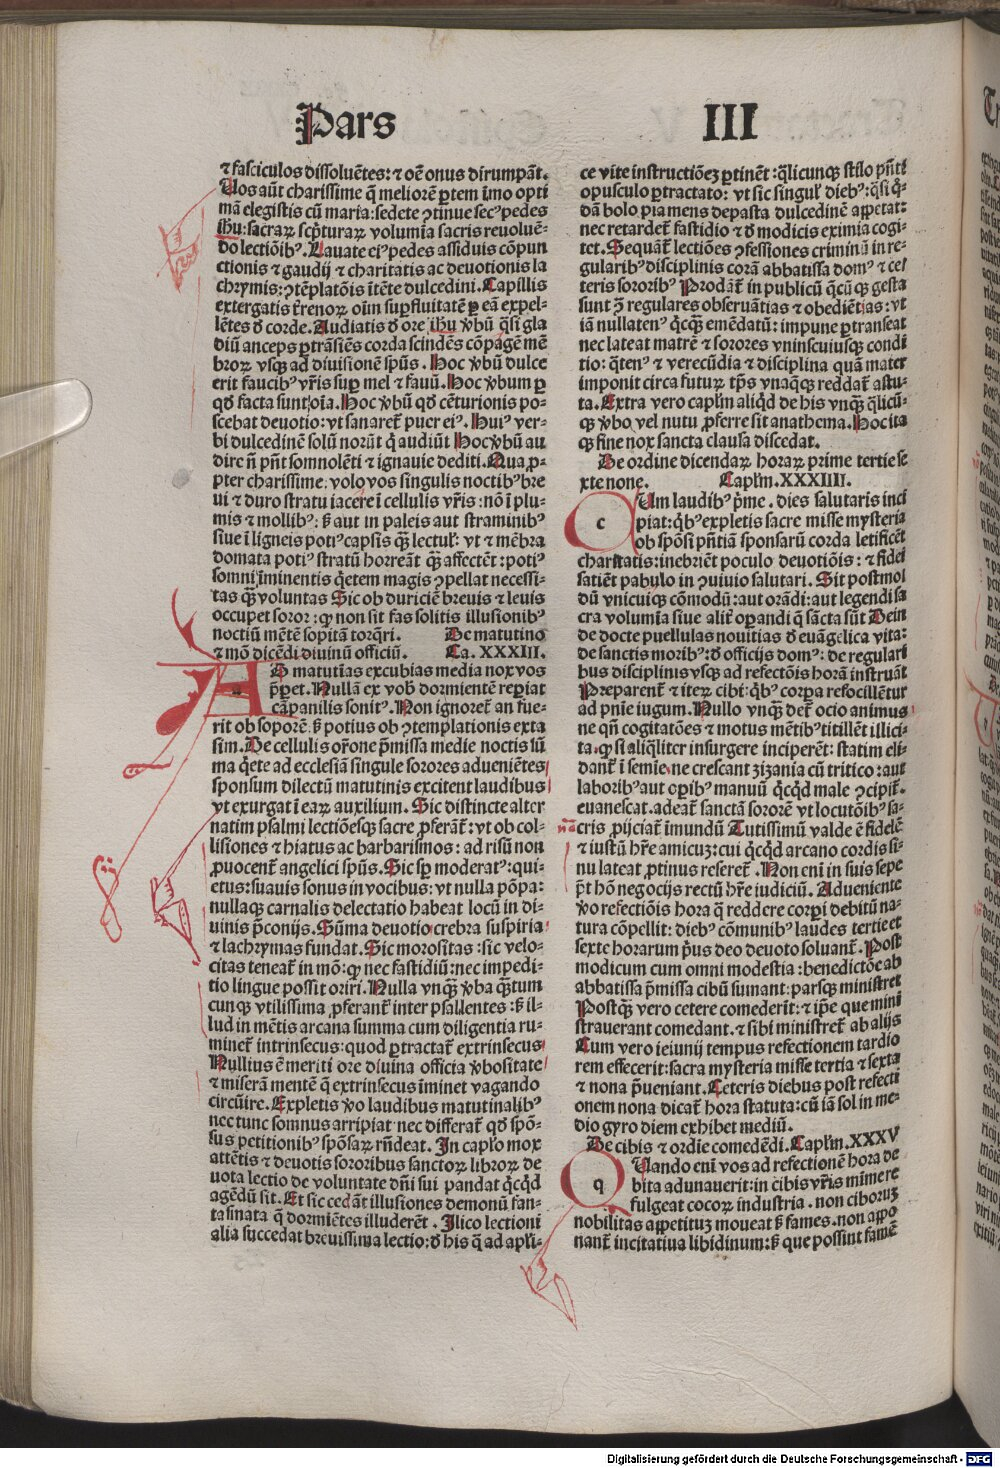 Pars III
⁊ fasciculos dissoluētes: ⁊ oē onus dirumpāt.
Uos aūt charissime q̄ meliorē ꝑtem īmo opti
mā elegistis cū maria: sedete ꝯtinue sec⁹ pedes
ihū: sacraꝝ scp̄turaꝝ volumīa sacris reuoluē-
do lectiōib⁹. Lauate ei⁹ pedes assiduis cōpun
ctionis ⁊ gaudij ⁊ charitatis ac deuotionis la
chrymis: ꝯtēplatōis ītēte dulcedini. Capillis
extergatis t̄renoꝝ oīm suꝑfluitatē ꝑ eā expel-
lētes ď corde. Audiatis ď ore ihū v̄bū q̄si gla
diū anceps ꝑtrāsiēs corda scindēs cōpagē mē
broꝝ vsqꝫ ad diuisionē spūs. Hoc v̄bū dulce
erit faucib⁹ vr̄is suꝑ mel ⁊ fauū. Hoc v̄bum ꝑ
qď facta sunt oīa. Hoc v̄bū qď cēturionis po-
scebat deuotio: vt sanaret᷑ puer ei⁹. Hui⁹ ver-
bi dulcedinē solū norūt q̄ audiūt Hoc v̄bū au
dire nō pn̄t somnolēti ⁊ ignauie dediti. Quaꝓ-
pter charissime: volo vos singulis noctib⁹ bre
ui ⁊ duro stratu iacere ī cellulis vr̄is: nō ī plu-
mis ⁊ mollib⁹: s̄ꝫ aut in paleis aut straminib⁹
siue ī ligneis poti⁹ capsis qꝫ̄ lectul᷒: vt ⁊ mēbra
domata poti⁹ stratū horreāt qꝫ̄ affectēt: poti⁹
somni īminentis q̄etem magis ꝯpellat necessi-
tas qꝫ̄ voluntas Sic ob duriciē breuis ⁊ leuis
occupet soror: qꝫ non sit fas solitis illusionib⁹
noctiū mētē sopitā torq̄ri. De matutino
⁊ mō dicēdi diuinū officiū. Ca. XXXIII.
AD matutīas excubias media nox vos
p̄ꝑet. Nullā ex vob᷒ dormientē reꝑiat
cāpanilis sonit⁹. Non ignoret᷑ an fue-
rit ob soporē. s̄ꝫ potius ob ꝯtemplationis exta
sim. De cellulis or̄one p̄missa medie noctis sū
ma q̄ete ad ecclesiā singule sorores adueniētes
sponsum dilectū matutinis excitent laudibus
vt exurgat ī eaꝝ auxilium. Sic distincte alter
natim psalmi lectiōesqꝫ sacre ꝓferāt᷑: vt ob col-
lisiones ⁊ hiatus ac barbarismos: ad risū non
ꝓuocent᷑ angelici spūs. Sic sꝑ moderat⁹: qui-
etus: suauis sonus in vocibus: vt nulla pōpa:
nullaqꝫ carnalis delectatio habeat locū in di-
uinis p̄conijs. Sūma deuotio crebra suspiria
⁊ lachrymas fundat. Sic morositas: sic velo-
citas teneat᷑ in mō: qꝫ nec fastidiū: nec impedi-
tio lingue possit oriri. Nulla vnqꝫ̄ v̄ba qꝫ̄tum
cunqꝫ vtilissima ꝓferant᷑ inter psallentes: s̄ꝫ il-
lud in mētis arcana summa cum diligentia ru-
minet᷑ intrinsecus: quod ꝑtractat᷑ extrinsecus
Nullius ē meriti ore diuina officia v̄bositate
⁊ miserā mentē q̄ extrinsecus īminet vagando
circūire. Expletis v̄o laudibus matutinalib⁹
nec tunc somnus arripiat᷑ nec differat᷑ qď spō-
sus petitionib⁹ spōsaꝝ rn̄deat. In capl̄o mox
attētis ⁊ deuotis sororibus sanctoꝝ libroꝝ de
uota lectio de voluntate dn̄i sui pandat q̄cqd
agēdū sit. Et sic cedāt illusiones demonū fan-
tasinata q̄ dormiētes illuderēt. Ilico lectioni
alia succedat breuissima lectio: ď his q̄ ad apl̄i-
ce vite instructiōeꝫ ꝑtinēt: q̄licunqꝫ stilo pn̄ti
opusculo ꝑtractato: vt sic singul᷒ dieb⁹: q̄si q̄-
dā bolo pia mens depasta dulcedinē appetat:
nec retardet᷑ fastidio ⁊ ď modicis eximia cogi-
tet. Sequāt᷑ lectiōes ꝯfessiones criminū in re-
gularib⁹ disciplinis corā abbatissa dom⁹ ⁊ ce-
teris sororib⁹ Prodāt᷑ in publicū q̄cūqꝫ gesta
sunt ꝯ̄ regulares obseruātias ⁊ obediētias: vt
iā nullaten⁹ q̄cqꝫ̄ emēdatū: impune ꝑtranseat
nec lateat matrē ⁊ sorores vniuscuiusqꝫ condi
tio: q̄ten⁹ ⁊ verecūdia ⁊ disciplina quā mater
imponit circa futuꝝ tp̄s vnaqꝫ̄qꝫ reddat᷑ astu-
ta. Extra vero capl̄m aliqd de his vnqꝫ̄ q̄licū-
qꝫ v̄bo vel nutu ꝓferre sit anathema. Hoc ita
qꝫ fine nox sancta clausa discedat.
De ordine dicendaꝝ horaꝝ prime tertie se
xte none. Capl̄m. XXXIIII.
CUm laudib⁹ p̄me. dies salutaris inci
piat: q̄b⁹ expletis sacre misse mysteria
ob spōsi pn̄tiā sponsarū corda letificēt
charitatis: inebriēt poculo deuotiōis: ⁊ fidei
satiēt pabulo in ꝯuiuio salutari. Sit postmo-
dū vnicuiqꝫ cōmodū: aut orādi: aut legendi sa
cra volumīa siue alit᷑ oꝑandi q̄ sācta sūt Dein
de docte puellulas nouitias ď euāgelica vita:
de sanctis morib⁹: ď officijs dom⁹: de regulari
bus disciplinis vsqꝫ ad refectōis horā instruāt
Preparent᷑ ⁊ iteꝝ cibi: q̄b⁹ corꝑa refocillētur
ad pn̄ie iugum. Nullo vnqꝫ̄ det᷑ ocio animus
ne qn̄ cogitatōes ⁊ motus mētib⁹ titillēt illici-
ta. qꝫ si aliq̄liter insurgere inciperēt: statim eli-
dant᷑ ī semīe ne crescant zizania cū tritico: aut
laborib⁹ aut oꝑib⁹ manuū q̄cqd male ꝯcipit᷑.
euanescat. adeat᷑ sanctā sororē vt locutōib⁹ sa-
cris ꝓijciat᷑ īmundū Tutissimū valde ē fidelē
⁊ iustū hr̄e amicuꝫ: cui q̄cqd arcano cordis si-
nu lateat ꝓtinus referet᷑. Non eni in suis sepe
p̄t hō negocijs rectū hr̄e iudiciū. Adueniente
v̄o refectiōis hora q̄ reddere corꝑi debitū na-
tura cōpellit: dieb⁹ cōmunib⁹ laudes tertie et
sexte horarum p̄us deo deuoto soluant᷑. Post
modicum cum omni modestia: benedictōe ab
abbatissa p̄missa cibū sumant: parsqꝫ ministret
Postqꝫ̄ vero cetere comederīt: ⁊ ip̄e que mini
strauerant comedant. ⁊ sibi ministret᷑ ab alijs
Cum vero ieiunij tempus refectionem tardio
rem effecerit: sacra mysteria misse tertia ⁊ sexta
⁊ nona p̄ueniant. Ceteris diebus post refecti
onem nona dicat᷑ hora statuta: cū iā sol in me-
dio gyro diem exhibet mediū.
De cibis ⁊ ordie comedēdi. Capl̄m. XXXV
QUando eni vos ad refectionē hora de
bita adunauerit: in cibis vr̄is mīme re
fulgeat cocoꝝ industria. non ciboruꝫ
nobilitas appetituꝫ moueat s̄ꝫ fames. non appo
nant᷑ incitatiua libidinum: s̄ꝫ que possint famē
Digitalisierung gefördert durch die Deutsche Forschungsgemeinschaft - DFG